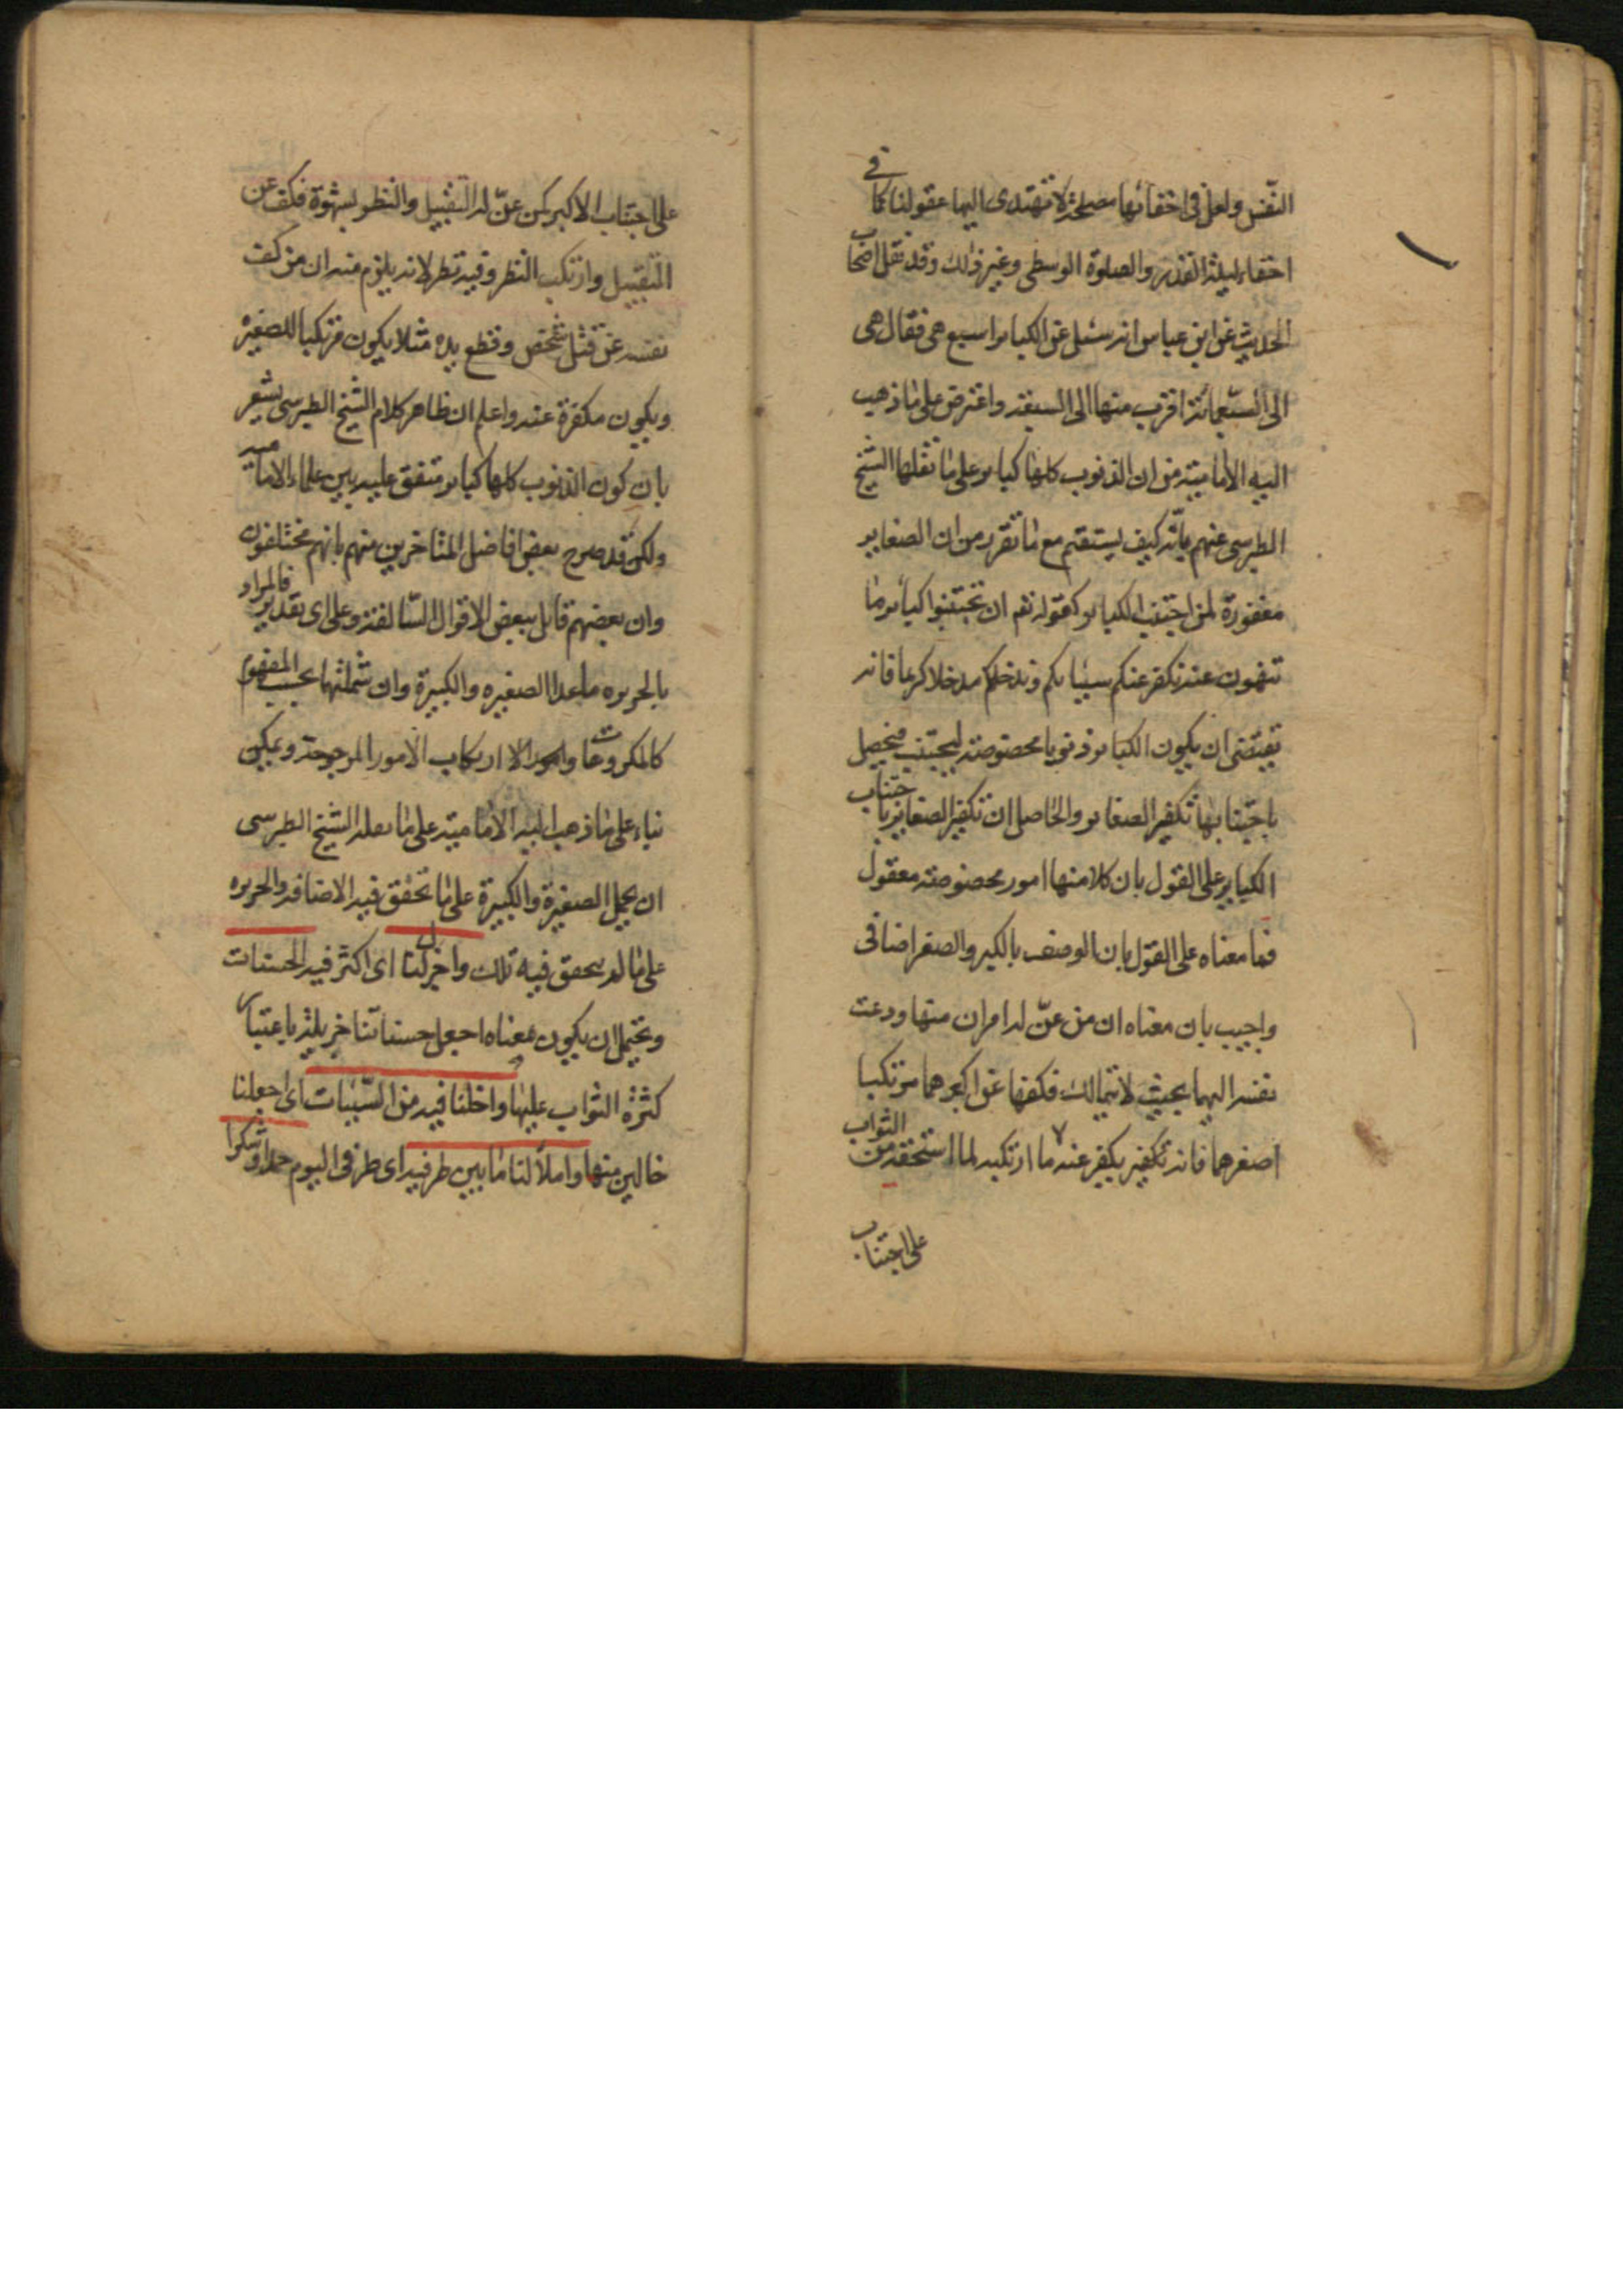 النفس ولعل فی اخفائها مصلحة لا تهتدی الیها عقولنا کما فی
اخفاء لیلة القدر والصلوة الوسطی وغیر ذلك وقد نقل اصحاب
الحدیث عن ابن عباس انه سئل عن الکبایر اسبع هی فقال هی
الی السبعمائة اقرب منها الی السبعة واعترض علی ما ذهب
الیه الامامیة من ان الذنوب کلها کبایر علی ما نقلها الشیخ
الطبرسی عنهم بانه کیف یستقیم مع ما تقرر من ان الصغایر
مغفورة لمن اجتنب الکبایر کقوله تعم ان تجتنبوا کبائر ما
تنهون عنه نکفر عنکم سیئاتکم وندخلکم مدخلا کریما فانه
یقتضی ان یکون الکبایر ذنوبا مخصوصة لیجتنب فیحصل
باجتنابها تکفیر الصغایر والحاصل ان تکفیر الصغایر باجتناب
الکبایر علی القول بان کلا منها امور مخصوصة معقول
فما معناه علی القول بان الوصف بالکبر والصغر اضافی
واجیب بان معناه ان من عنّ له امران منها ودعت
نفسه الیهما بحیث لا یتمالك فکفها عن اکبرهما مرتکبا
اصغرهما فانه یکفر عنه ما ارتکبه لما استحقه من الثواب
علی اجتناب
علی اجتناب الاکبر کمن عنّ له التقبیل والنظر بشهوة فکف عن
التقبیل وارتکب النظر وفیه نظر لانه یلزم منه ان من کف
نفسه عن قتل شخص وقطع یده مثلا یکون مرتکبا للصغیره
ویکون مکفرة عنه واعلم ان ظاهر کلام الشیخ الطبرسی یشعر
بان کون الذنوب کلها کبایر متفق علیه بین علماء الامامیه
ولکن قد صرح بعض افاضل المتاخرین منهم بانهم مختلفون
وان بعضهم قائل ببعض الاقوال السالفة وعلی ای تقدیر فالمراد
بالجریره ما عدا الصغیره والکبیرة وان شملتهما بحسب المفهوم
کالمکروهات او ارتکاب الامور المرجوحة ویمکن
بناء علی ما ذهب الیه الامامیة علی ما نقله الشیخ الطبرسی
ان یحمل الصغیرة والکبیرة علی ما تحقق فیه الاضافه والجریره
علی ما لم یتحقق فیه تلك واجزل لنا ای اکثر فیه الحسنات
ویحتمل ان یکون معناه اجعل حسناتنا جزیلة باعتبار
کثرة الثواب علیها واخلنا فیه من السیئات ای اجعلنا
خالین منها واملأ لنا ما بین طرفیه ای طرفی الیوم حمدا وشکرا